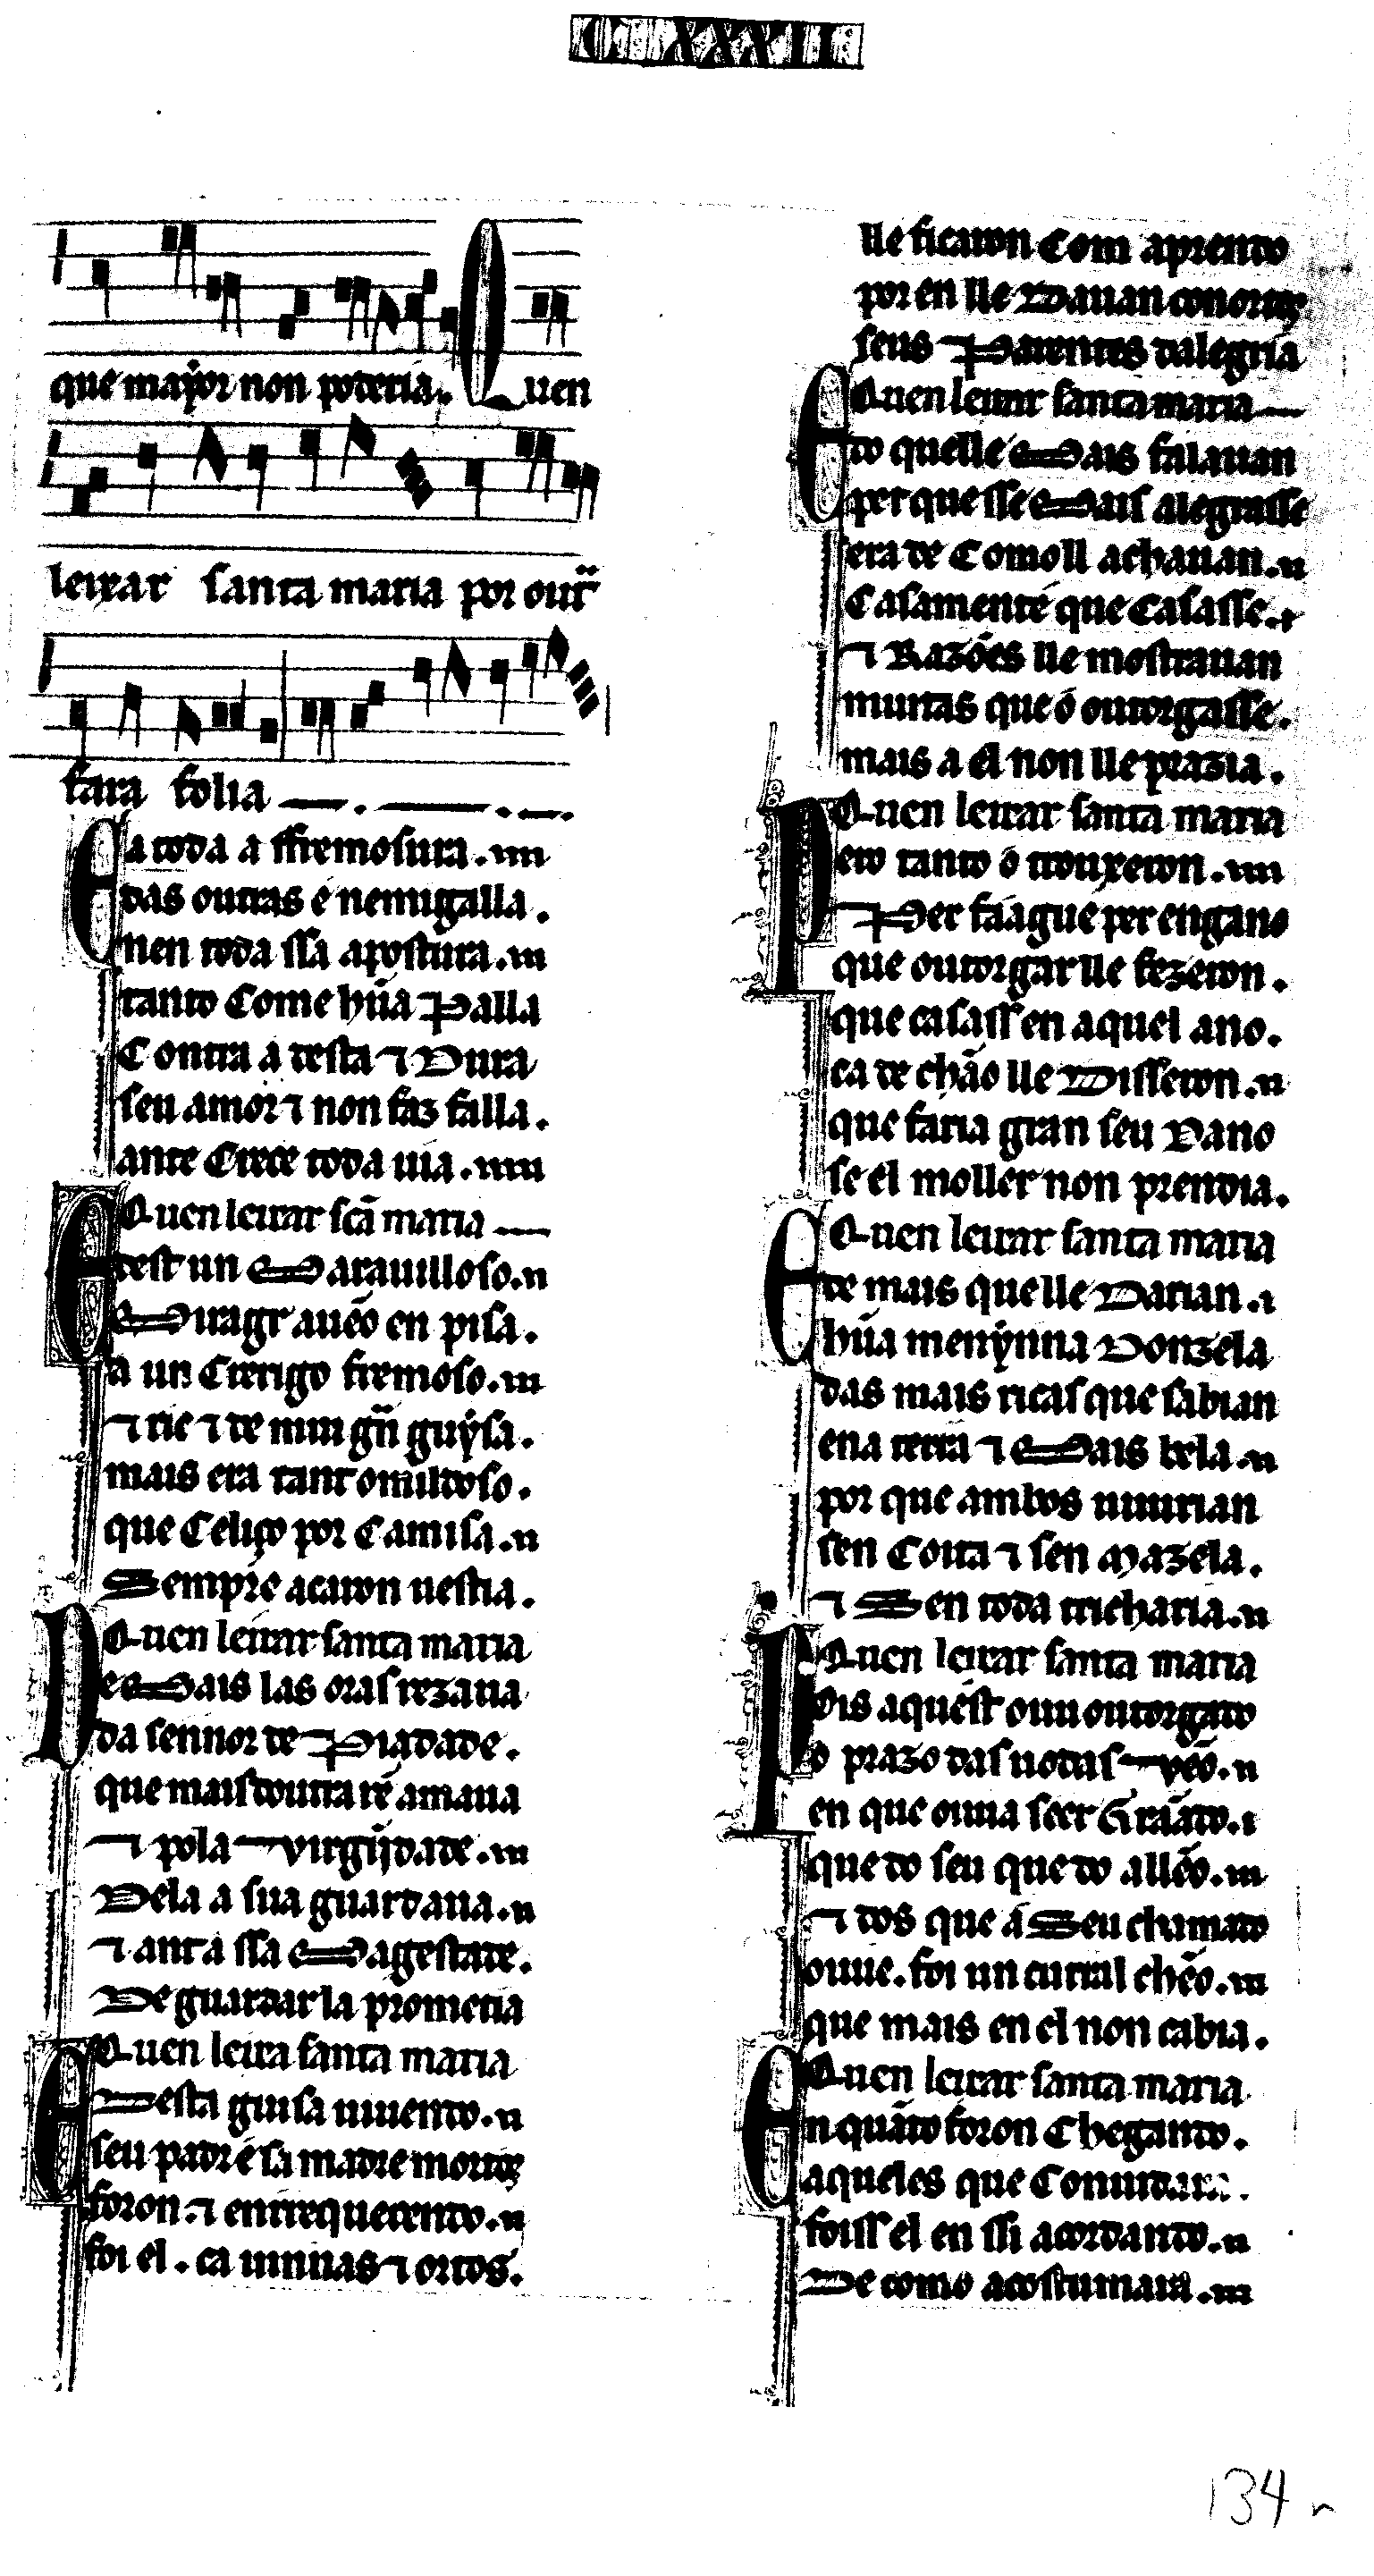 C XXXII
que mayor non poderia. Quen
leixar santa maria por outr̃
fara folia
Ca toda a ffremosura.
das outras é nemigalla.
nen toda ssa apostura.
tanto Come hũa Palla
Contra a desta ⁊ Dura
seu amor ⁊ non faz falla.
ante Crece toda uia.
Quen leixar scã maria
E dest un Marauilloso.
Miragr auẽo en pisa.
a un Crerigo fremoso.
⁊ ric ⁊ de mui gr̃ guysa.
mais era tant omildoso.
que Celiço por Camisa.
Sempre acaron uestia.
Quen leixar santa maria
De Mais las oras rezaua
da sennor de Piadade.
que mais doutra rẽ amaua
⁊ pola virgĩidade.
Dela a sua guardaua.
⁊ ant a ssa Magestade.
De guardar la prometia
Quen leixa santa maria
E Desta guisa uiuendo.
seu padr e sa madre mortos
foron. ⁊ enrrequecendo.
foi el. ca uinnas ⁊ ortos.
lle ficaron Com aprendo
por en lle Dauan conortos
seus Parentes dalegria
Quen leixar santa maria
E do quelle Mais falauan
per que sse Mais alegrasse
era de Comoll achauan.
Casamente que Casasse.
⁊ Razões lle mostrauan
muitas que o outorgasse.
mais a el non lle prazia.
Quen leixar santa maria
Pero tanto o trouxeron.
Per faague per engano
que outorgar lle fezeron.
que casass en aquel ano.
ca de chão lle Disseron.
que faria gran seu Dano
se el moller non prendia.
Quen leixar santa maria
E de mais que lle Darian.
hũa menynna Donzela
das mais ricas que sabian
ena terra ⁊ Mais bela.
por que ambos uiuirian
sen Coita ⁊ sen Mazela.
⁊ Sen toda tricharia.
Quen leixar santa maria
Pois aquest ouu outorgado
o prazo das uodas vẽo.
en que ouua seer Guãado.
que do seu que do allẽo.
⁊ dos que a Seu chamado
ouue. foi un curral chẽo.
que mais en el non cabia.
Quen leixar santa maria
En quãdo foron Chegando.
aqueles que Conuidara.
foiss el en ssi acordando.
De como acostumara.
134 r